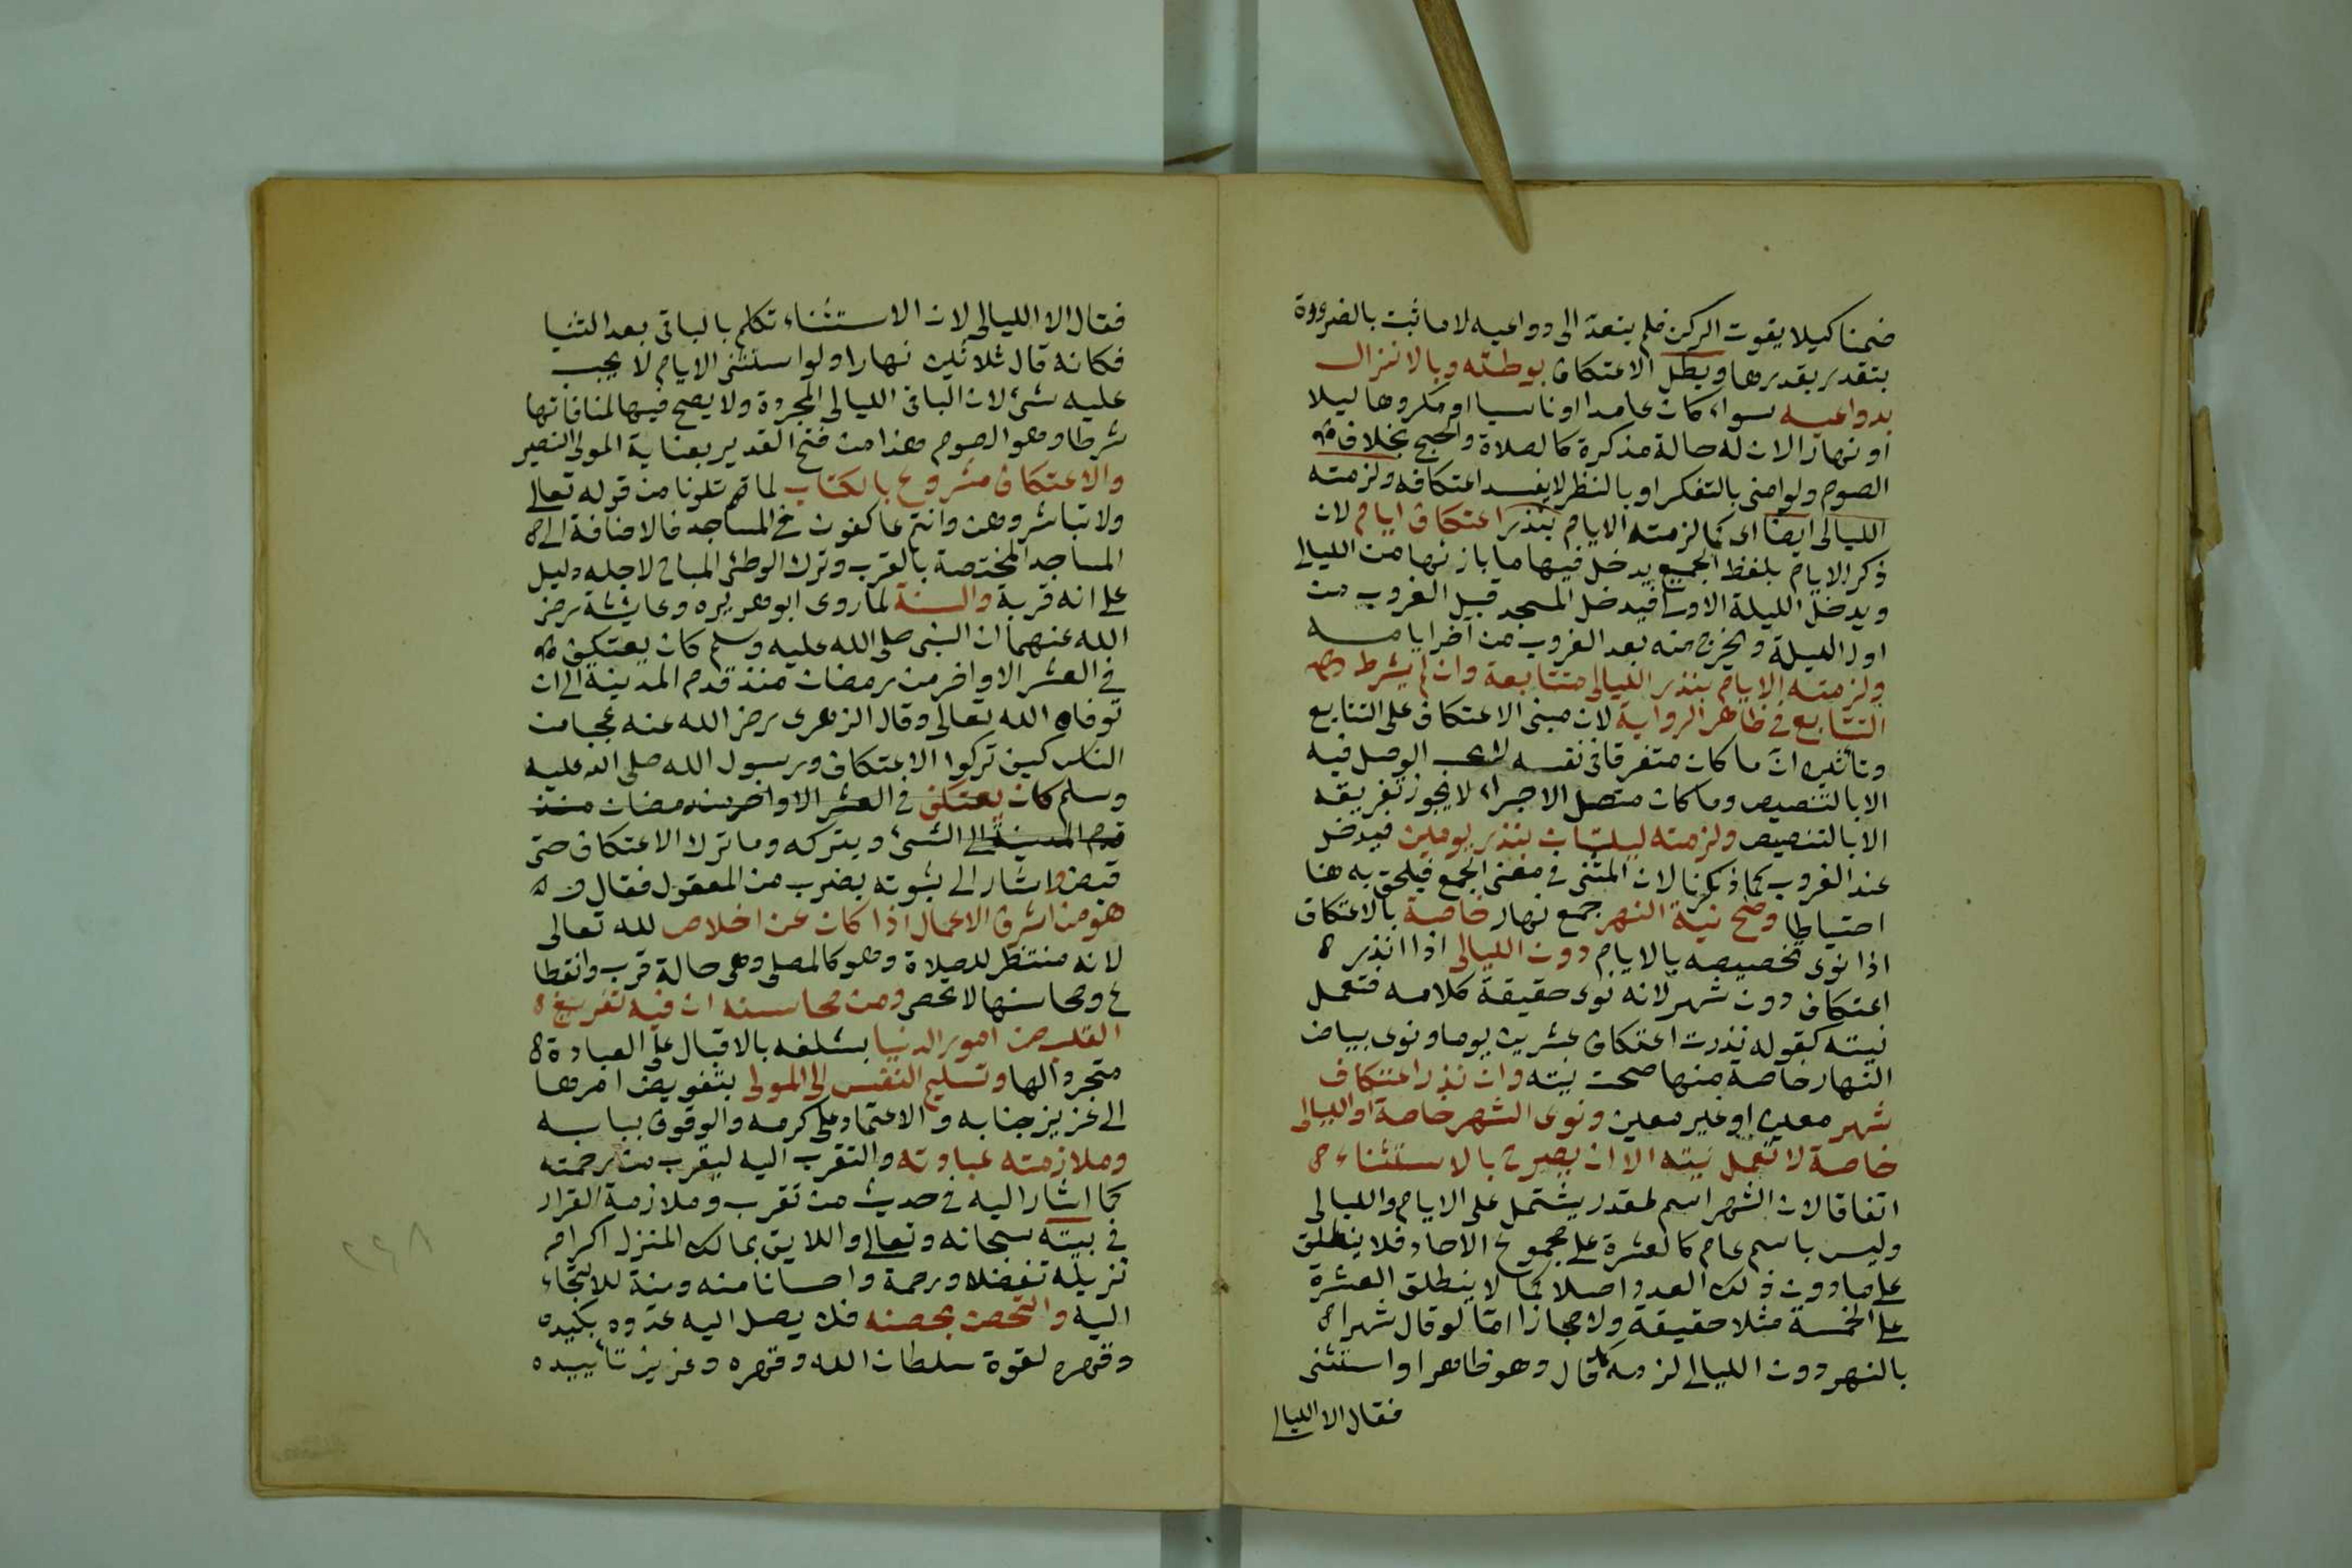 ضمنا كيلا يفوت الركن فلم يتعد الى دواعيه لا ما ثبت بالضرورة
بتقدر بقدرها وبطل الاعتكاف بوطئه وبالانزال
بدواعيه سواء كان عامدا او ناسيا او مكروها ليلا
او نهارا لان له حالة مذكرة كالصلاة والحج بخلاف
الصوم ولو امنى بالتفكر او بالنظر لا يفسد اعتكافه ولزمته
الليالى ايضا اى كما لزمته الايام بنذر اعتكاف ايام لان
ذكر الايام بلفظ الجمع يدخل فيها ما بازائها من الليالى
ويدخل الليلة الاولى فيدخل المسجد قبل الغروب من
اول الليلة ويخرج منه بعد الغروب من آخر ايامه
ولزمته الايام بنذر الليالى متتابعة وان لم يشرط
التتابع فى ظاهر الرواية لان مبنى الاعتكاف على التتابع
وتأثيره ان ما كان متفرقا فى نفسه لا يجب الوصل فيه
الا بالتنصيص وما كان متصل الاجزاء لا يجوز تفريقه
الا بالتنصيص ولزمته ليلتان بنذر يومين فيدخل
عند الغروب كما ذكرنا لان المثنى فى معنى الجمع فيلحق به هنا
احتياطا وصح نية النهر جمع نهار خاصة بالاعتكاف
اذا نوى تخصيصه بالايام دون الليالى اذا نذر
اعتكاف دون شهر لانه نوى حقيقة كلامه فتعمل
نيته كقوله نذرت اعتكاف عشرين يوما ونوى بياض
النهار خاصة منها صحت نيته وان نذر اعتكاف
شهر معين او غير معين ونوى الشهر خاصة او الليالى
خاصة لا تعمل نيته الا ان يصرح بالاستثناء
اتفاقا لان الشهر اسم لمقدر يشتمل على الايام والليالى
وليس باسم عام كالعشرة على مجموع الاحاد فلا ينطلق
على ما دون ذلك العدد اصلا كما لا ينطلق العشرة
على الخمسة مثلا حقيقة ولا مجازا اما لو قال شهرا
بالنهر دون الليالى لزمه كما قال وهو ظاهر او استثنى
فقال الا الليالى
فقال الا الليالى لان الاستثناء تكلم بالباقى بعد الثنيا
فكانه قال ثلاثين نهارا ولو استثنى الايام لا يجب
عليه شئ لان الباقى الليالى المجردة ولا يصح فيها لمنافاتها
شرطا وهو الصوم هذا من فتح القدير بعناية المولى النصير
والاعتكاف مشروع بالكتاب لما تلونا من قوله تعالى
ولا تباشروهن وانتم عاكفون فى المساجد فالاضافة الى
المساجد المختصة بالقرب وترك الوطئ المباح لاجله دليل
على انه قربة والسنة لما روى ابو هريرة وعايشة رضى
الله عنهما ان النبى صلى الله عليه وسلم كان يعتكف
فى العشر الاواخر من رمضان منذ قدم المدينة الى ان
توفاه الله تعالى وقال الزهرى رضى الله عنه عجبا من
الناس كيف تركوا الاعتكاف ورسول الله صلى الله عليه
وسلم كان يعتكف فى العشر الاواخر من رمضان منذ
قدم المدينة الى الشئ ويتركه وما ترك الاعتكاف حتى
قبض واشار الى ثبوته بضرب من المعقول فقال و
هو من اشرف الاعمال اذا كان عن اخلاص لله تعالى
لانه منتظر للصلاة وهو كالمصلى وهى حالة قرب وانقطا
ع ومحاسنها لا تحصر ومن محاسنه ان فيه تفريغ
القلب من امور الدنيا بشلغه بالاقبال على العبادة
متجردا لها وتسليم النفس الى المولى بتفويض امرها
الى عزيز جنابه والاعتماد على كرمه والوقوف ببابه
وملازمته عبادته والتقرب اليه ليقرب من رحمته
كما اشار اليه فى حديث من تقرب وملازمة القرار
فى بيته سبحانه وتعالى واللايق بمالك المنزل اكرام
نزيله تفضلا ورحمة واحسانا منه ومنة للالتجاء
اليه والتحصن بحصنه فلا يصل اليه عدوه بكيده
وقهره لقوة سلطان الله وقهره وعزيز تأييده